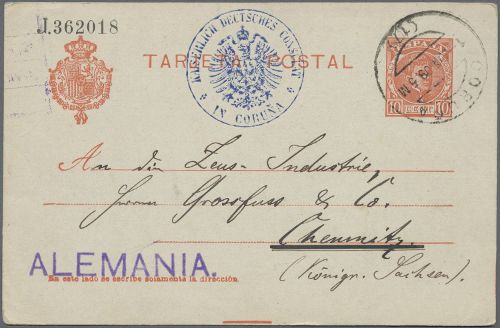 J.362018
TARJETA POSTAL
KAISERLICH DEUTSCHES CONSULAT
IN CORUÑA
10 10
An die Zeus-Industrie,
Herren Grossfuss & Co.
Chemnitz.
(Königr. Sachsen).
ALEMANIA.
En este lado se escribe solamente la dirección.